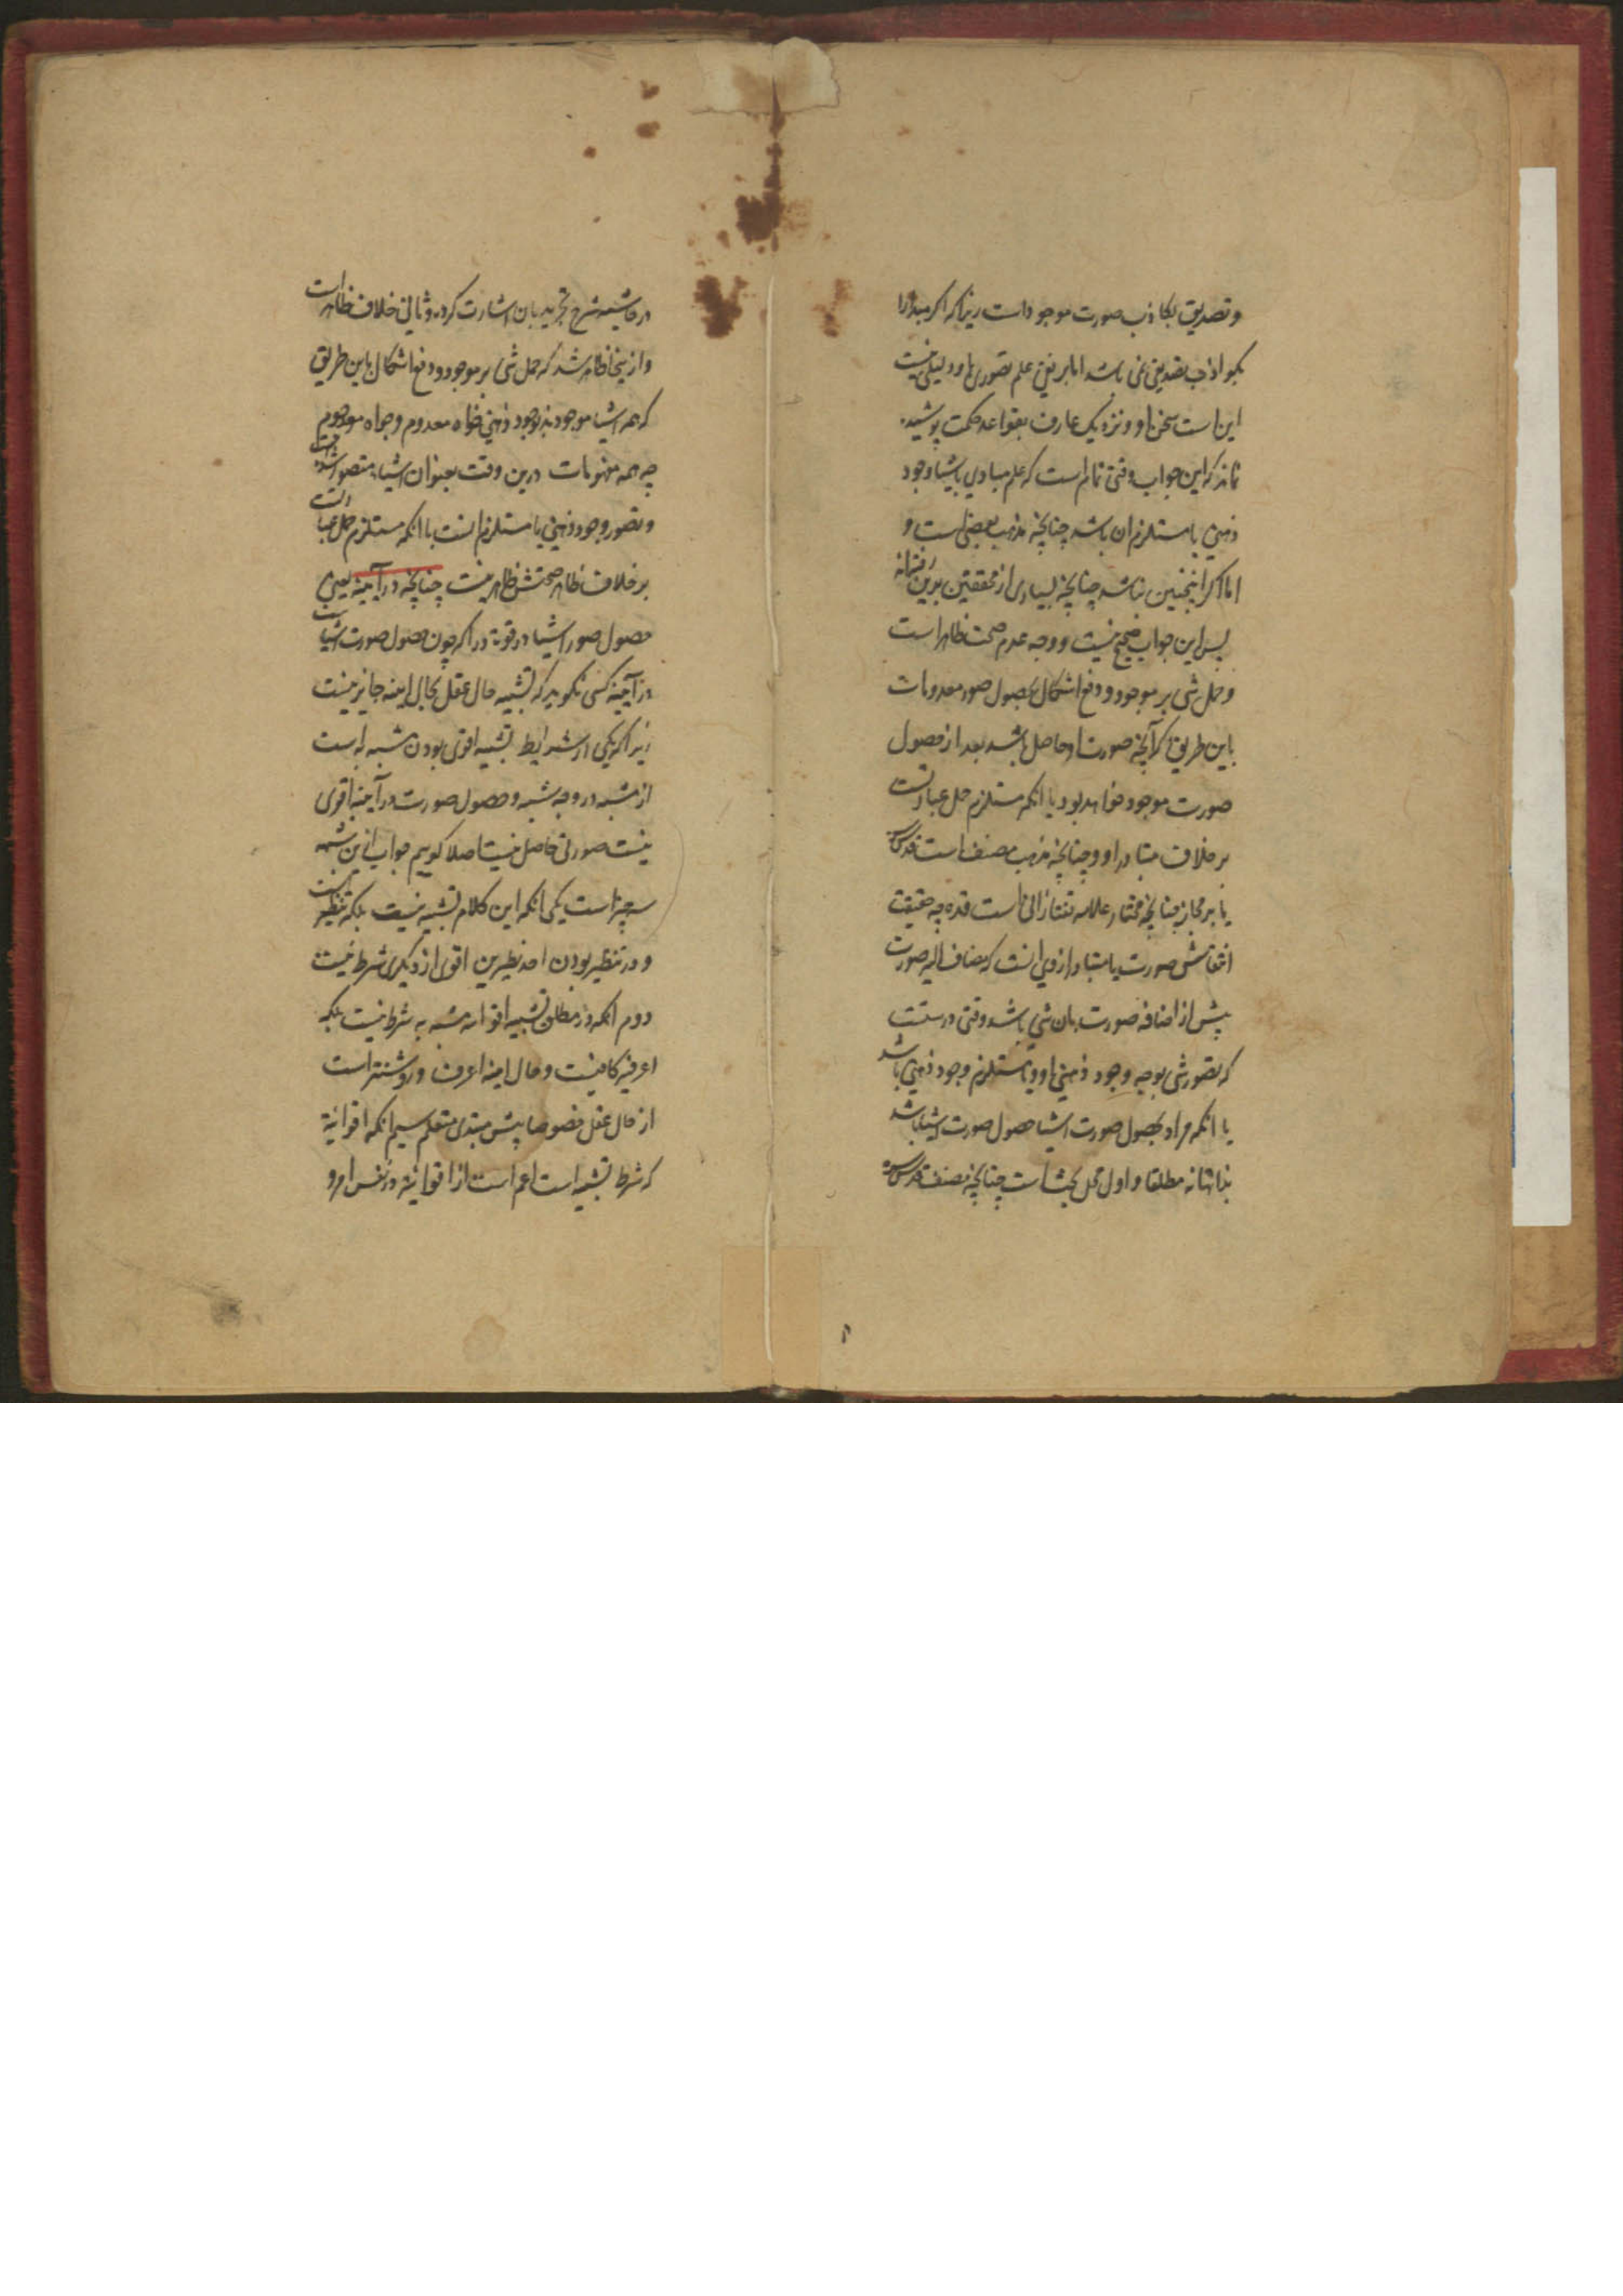 و تصدیق بکاذب صورت موجود است زیرا که اکر مبدأرا
بکواذب تصدیق نمی باشد اما بر نفی علم تصوری باو دلیلی نیست
این است سخن او و نزدیک عارف بقواعد حکمت پوشیده
نماند که این جواب وقتی تمام است که علم مبادی باشیا وجود
ذهنی یا مستلزم ان باشد چنانچه مذهب بعضی است و
اما اکر اینچنین نباشد چنانچه بسیاری از محققین برین رفته‌اند
پس این جواب صحیح نیست و وجه عدم صحت ظاهر است
و حمل شی بر موجود و دفع اشکال بحصول صور معدومات
باین طریق که آنچه صورت او حاصل باشد بعد از حصول
صورت موجود خواهد بود با انکه مستلزم حمل عبارتست
بر خلاف متبادر او چنانچه مذهب مصنف است قدس سره
یا بر مجاز چنانچه مختار علامه تفتازانی است قده چه حقیقت
صورت یا متبادر از وی انست که مضاف الیه صورت
پیش از اضافه صورت بان شی باشد وقتی درستست
که تصور شی بوجه وجود ذهنی او یا مستلزم وجود ذهنی باشد
یا انکه مراد بحصول صورت اشیا حصول صورت اشیا باشد
بذاتها نه مطلقا و اول محل بحث است چنانچه مصنف قدس سره
در حاشیه شرح تجرید بان اشارت کرده و ثانی خلاف ظاهر است
و ازینجا ظاهر شد که حمل شی بر موجود و دفع اشکال باین طریق
که همه اشیا موجودند بوجود ذهنی خواه معدوم و خواه موجود
چه همه مفهومات درین وقت بعنوان اشیاء متصور شده است
و تصور وجود ذهنی یا مستلزم انست با انکه مستلزم حمل عبارتست
بر خلاف ظاهر صحتش ظاهر نیست چنانچه در آیینه یعنی
حصول صور اشیا در قوة دراکه چون حصول صورت اشیاست
در آیینه کسی نکوید که تشبیه حال عقل بحال اینه جایز نیست
زیرا که یکی از شرایط تشبیه اقوی بودن مشبه به است
از مشبه در وجه شبه و حصول صورت در آیینه اقوی
نیست صورتی حاصل نیست اصلا کوییم جواب ازین شبهه
سه چیز است یکی انکه این کلام تشبیه نیست بلکه تنظیر است
و در تنظیر بودن احد نظیرین اقوی از دیکری شرط نیست
دوم انکه در مطلق تشبیه مشبه به شرط نیست بلکه
اعرفیه کافیست و حال اینه اعرف و روشنتر است
از حال عقل خصوصا پیش مبتدی متعلم سیم انکه اقوائیة
که شرط تشبیه است اعم است از اقوائیة در نفس امر و